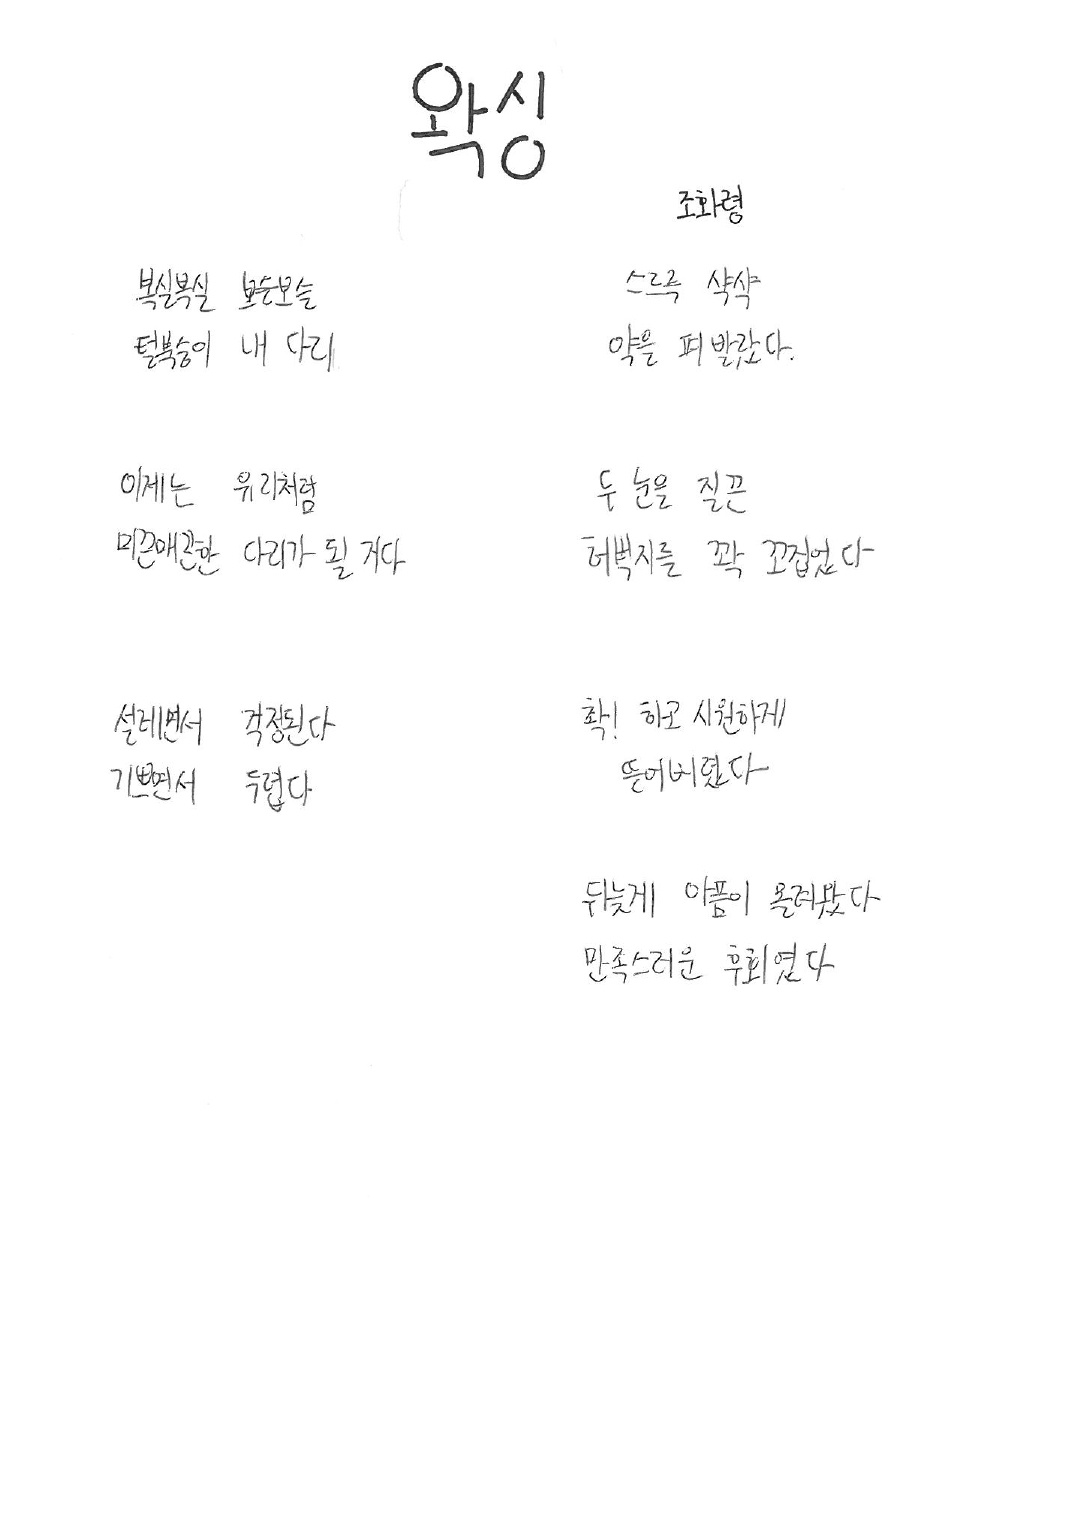 왁싱
조화령
복실복실 보슨보슬
털북숭이 내 다리
이제는 유리처럼
미끈매끈한 다리가 될 거다
설레면서 걱정된다
기쁘면서 두렵다
스르륵 샥샥
약을 펴발랐다.
두 눈을 질끈
허벅지를 꽉 꼬집었다
확! 하고 시원하게
뜯어버렸다
뒤늦게 아픔이 몰려왔다
만족스러운 후회였다